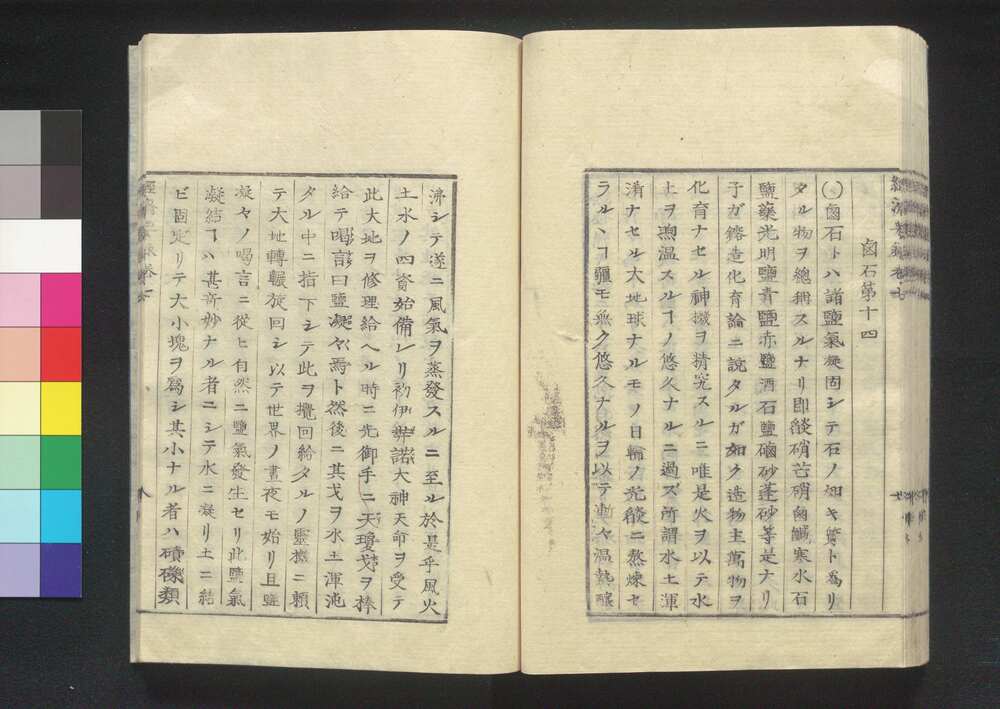 鹵石第十四
○鹵石トハ諸鹽氣凝固シテ石ノ如キ質ト爲リ
タル物ヲ總稱スルナリ即燄硝芒硝鹵鹹寒水石
鹽藥光明鹽青鹽赤鹽酒石鹽硇砂蓬砂等是ナリ
子ガ鎔造化育論ニ說タルガ如ク造物主萬物ヲ
化育ナセル神機ヲ精究スルニ唯是火ヲ以テ水
土ヲ煦温スルヿノ悠久ナルニ過ズ所謂水土渾
淆ナセル大地球ナルモノ日輪ノ光燄ニ熬煉セ
ラルヽヿ疆モ無ク悠久ナルヲ以テ漸々温熱釀
沸シテ遂ニ風氣ヲ蒸發スルニ至ル於是乎風火
土水ノ四資始備レリ初伊弉諾大神天命ヲ受テ
此大地ヲ修理給ヘル時ニ先御手ニ天瓊戈ヲ捧
給テ喝言曰鹽凝々焉ト然後ニ其戈ヲ水土渾沌
タル中ニ指下シテ此ヲ攪回給タルノ靈機ニ頼
テ大地轉輾旋回シ以テ世界ノ晝夜モ始リ且鹽
凝々ノ喝言ニ從ヒ自然ニ鹽氣發生セリ此鹽氣
凝結ヿハ甚奇妙ナル者ニシテ水ニ凝リ土ニ結
ビ固定リテ大小塊ヲ爲シ其小ナル者ハ磧礫類